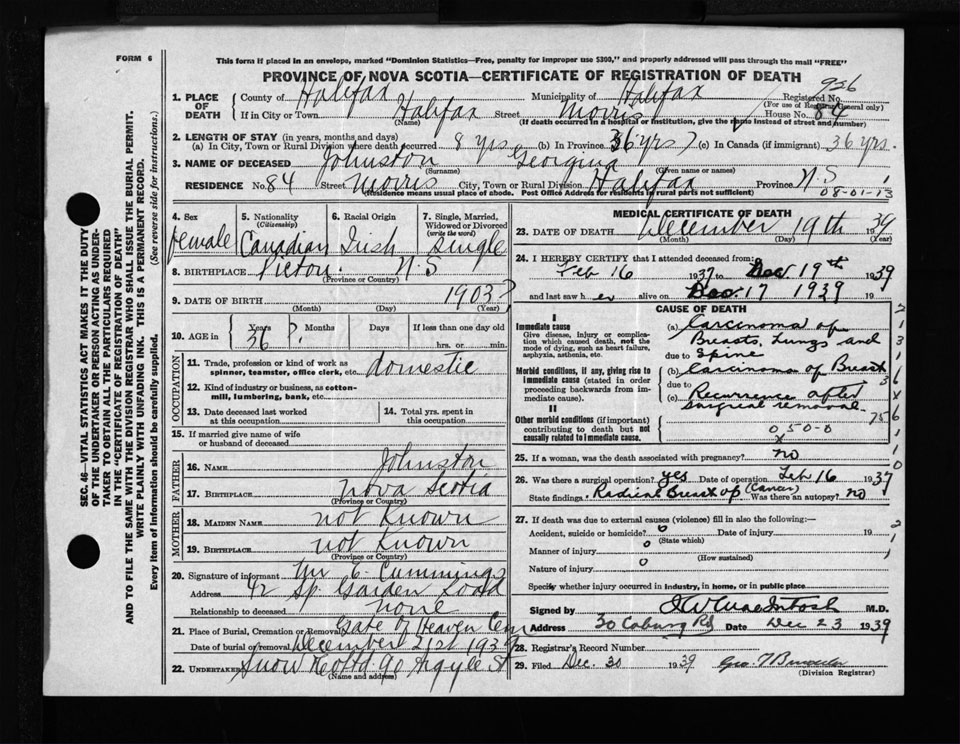 FORM 6
This form if placed in an envelope, marked "Dominion Statistics—Free, penalty for improper use $300," and properly addressed will pass through the mail "FREE"
PROVINCE OF NOVA SCOTIA—CERTIFICATE OF REGISTRATION OF DEATH
926
1. PLACE OF DEATH County of Halifax Municipality of Halifax Registered No. (For use of Registrar General only)
If in City or Town Halifax (Name) Street Morris House No. 84
(If death occurred in a hospital or institution, give the name instead of street and number)
2. LENGTH OF STAY (in years, months and days)
(a) In City, Town or Rural Division where death occurred 8 yrs (b) In Province 36 yrs ) (c) In Canada (if immigrant) 36 yrs.
3. NAME OF DECEASED Johnston Georgina
(Surname) (Given name or names)
RESIDENCE No. 84 Street Morris City, Town or Rural Division Halifax Province N.S 1
(Residence means usual place of abode. Post Office Address for residents in rural parts not sufficient) 08-01-13
4. Sex female
5. Nationality (Citizenship) Canadian
6. Racial Origin Irish
7. Single, Married, Widowed or Divorced (write the word) Single
8. BIRTHPLACE Pictou. N.S
(Province or Country)
9. DATE OF BIRTH 1903?
(Month) (Day) (Year)
10. AGE in Years 36 ? Months Days If less than one day old hrs. or min.
OCCUPATION
11. Trade, profession or kind of work as spinner, teamster, office clerk, etc. domestic
12. Kind of industry or business, as cotton-mill, lumbering, bank, etc.
13. Date deceased last worked at this occupation
14. Total yrs. spent in this occupation
15. If married give name of wife or husband of deceased
FATHER
16. Name Johnston
17. Birthplace Nova Scotia
(Province or Country)
MOTHER
18. Maiden Name not known
19. Birthplace not known
(Province or Country)
20. Signature of informant Mr E. Cummings
Address 42 Sp. Garden Road
Relationship to deceased none
21. Place of Burial, Cremation or Removal Gate of Heaven Cem
Date of burial or removal December 21st 1939
22. Undertaker Snow & Co Ltd 90 Argyle St
(Name and address)
MEDICAL CERTIFICATE OF DEATH
23. DATE OF DEATH December 19th 1939
(Month) (Day) (Year)
24. I HEREBY CERTIFY that I attended deceased from:
Feb 16 1937 to Dec. 19th 1939
and last saw h er alive on Dec. 17 1939 19
CAUSE OF DEATH
I
Immediate cause
Give disease, injury or complication which caused death, not the mode of dying, such as heart failure, asphyxia, asthenia, etc.
(a) Carcinoma of
Breasts, Lungs and
due to Spine
Morbid conditions, if any, giving rise to immediate cause (stated in order proceeding backwards from immediate cause).
(b) Carcinoma of Breast
due to
(c) Recurrence after
surgical removal
II
Other morbid conditions (if important) contributing to death but not causally related to immediate cause.
75
050-0
x
25. If a woman, was the death associated with pregnancy? no
26. Was there a surgical operation? yes Date of operation Feb 16 1937
State findings Radical Breast op (Cancer) Was there an autopsy? no
27. If death was due to external causes (violence) fill in also the following:—
Accident, suicide or homicide? 0 Date of injury 19
(State which)
Manner of injury 0
(How sustained)
Nature of injury 0
Specify whether injury occurred in industry, in home, or in public place
Signed by MacIntosh M.D.
Address 30 Coburg Rd Date Dec 23 1939
28. Registrar's Record Number
29. Filed Dec. 30 1939 Geo.
(Division Registrar)
SEC. 46—VITAL STATISTICS ACT MAKES IT THE DUTY
OF THE UNDERTAKER OR PERSON ACTING AS UNDER-
TAKER TO OBTAIN ALL THE PARTICULARS REQUIRED
IN THE "CERTIFICATE OF REGISTRATION OF DEATH"
AND TO FILE THE SAME WITH THE DIVISION REGISTRAR WHO SHALL ISSUE THE BURIAL PERMIT.
WRITE PLAINLY WITH UNFADING INK. THIS IS A PERMANENT RECORD.
Every item of Information should be carefully supplied. (See reverse side for instructions.)